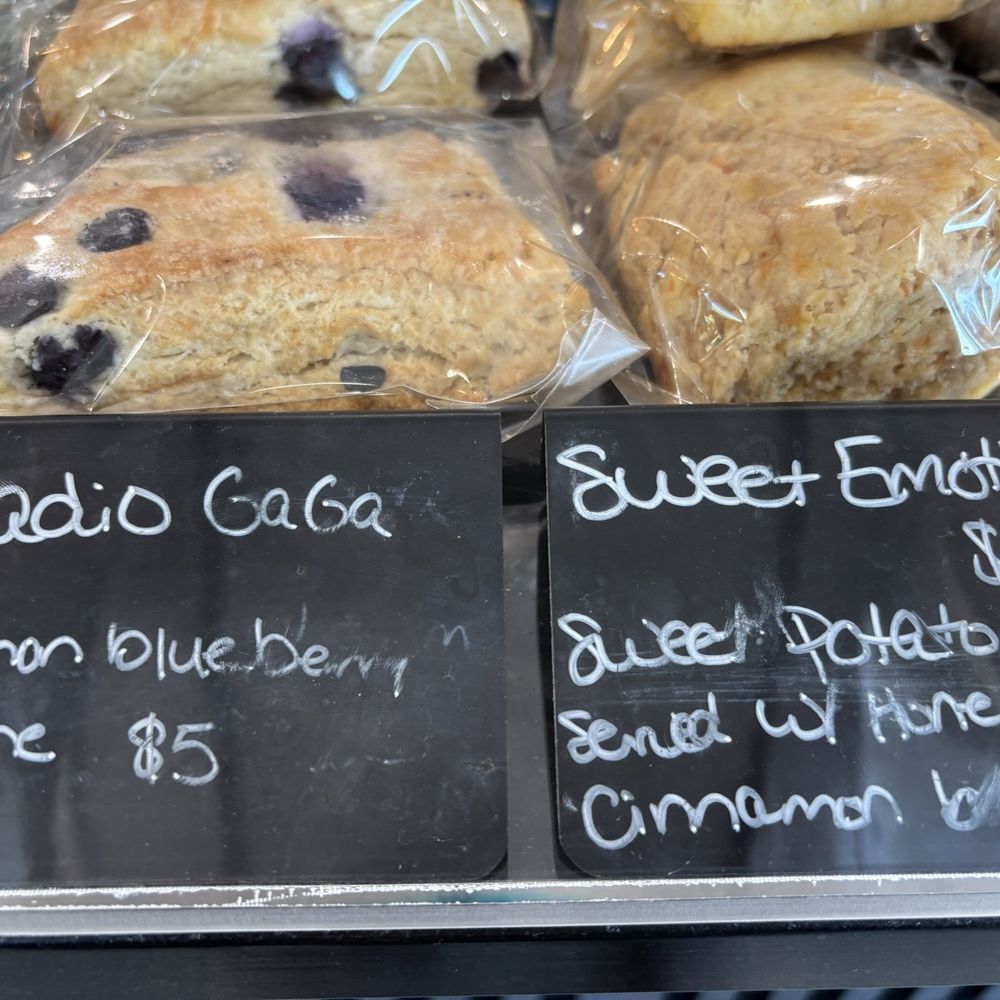 adio GaGa
non blueberry
ne $5
Sweet Emoti
$
Sweet Potato
Served w/ Hone
Cinnamon b